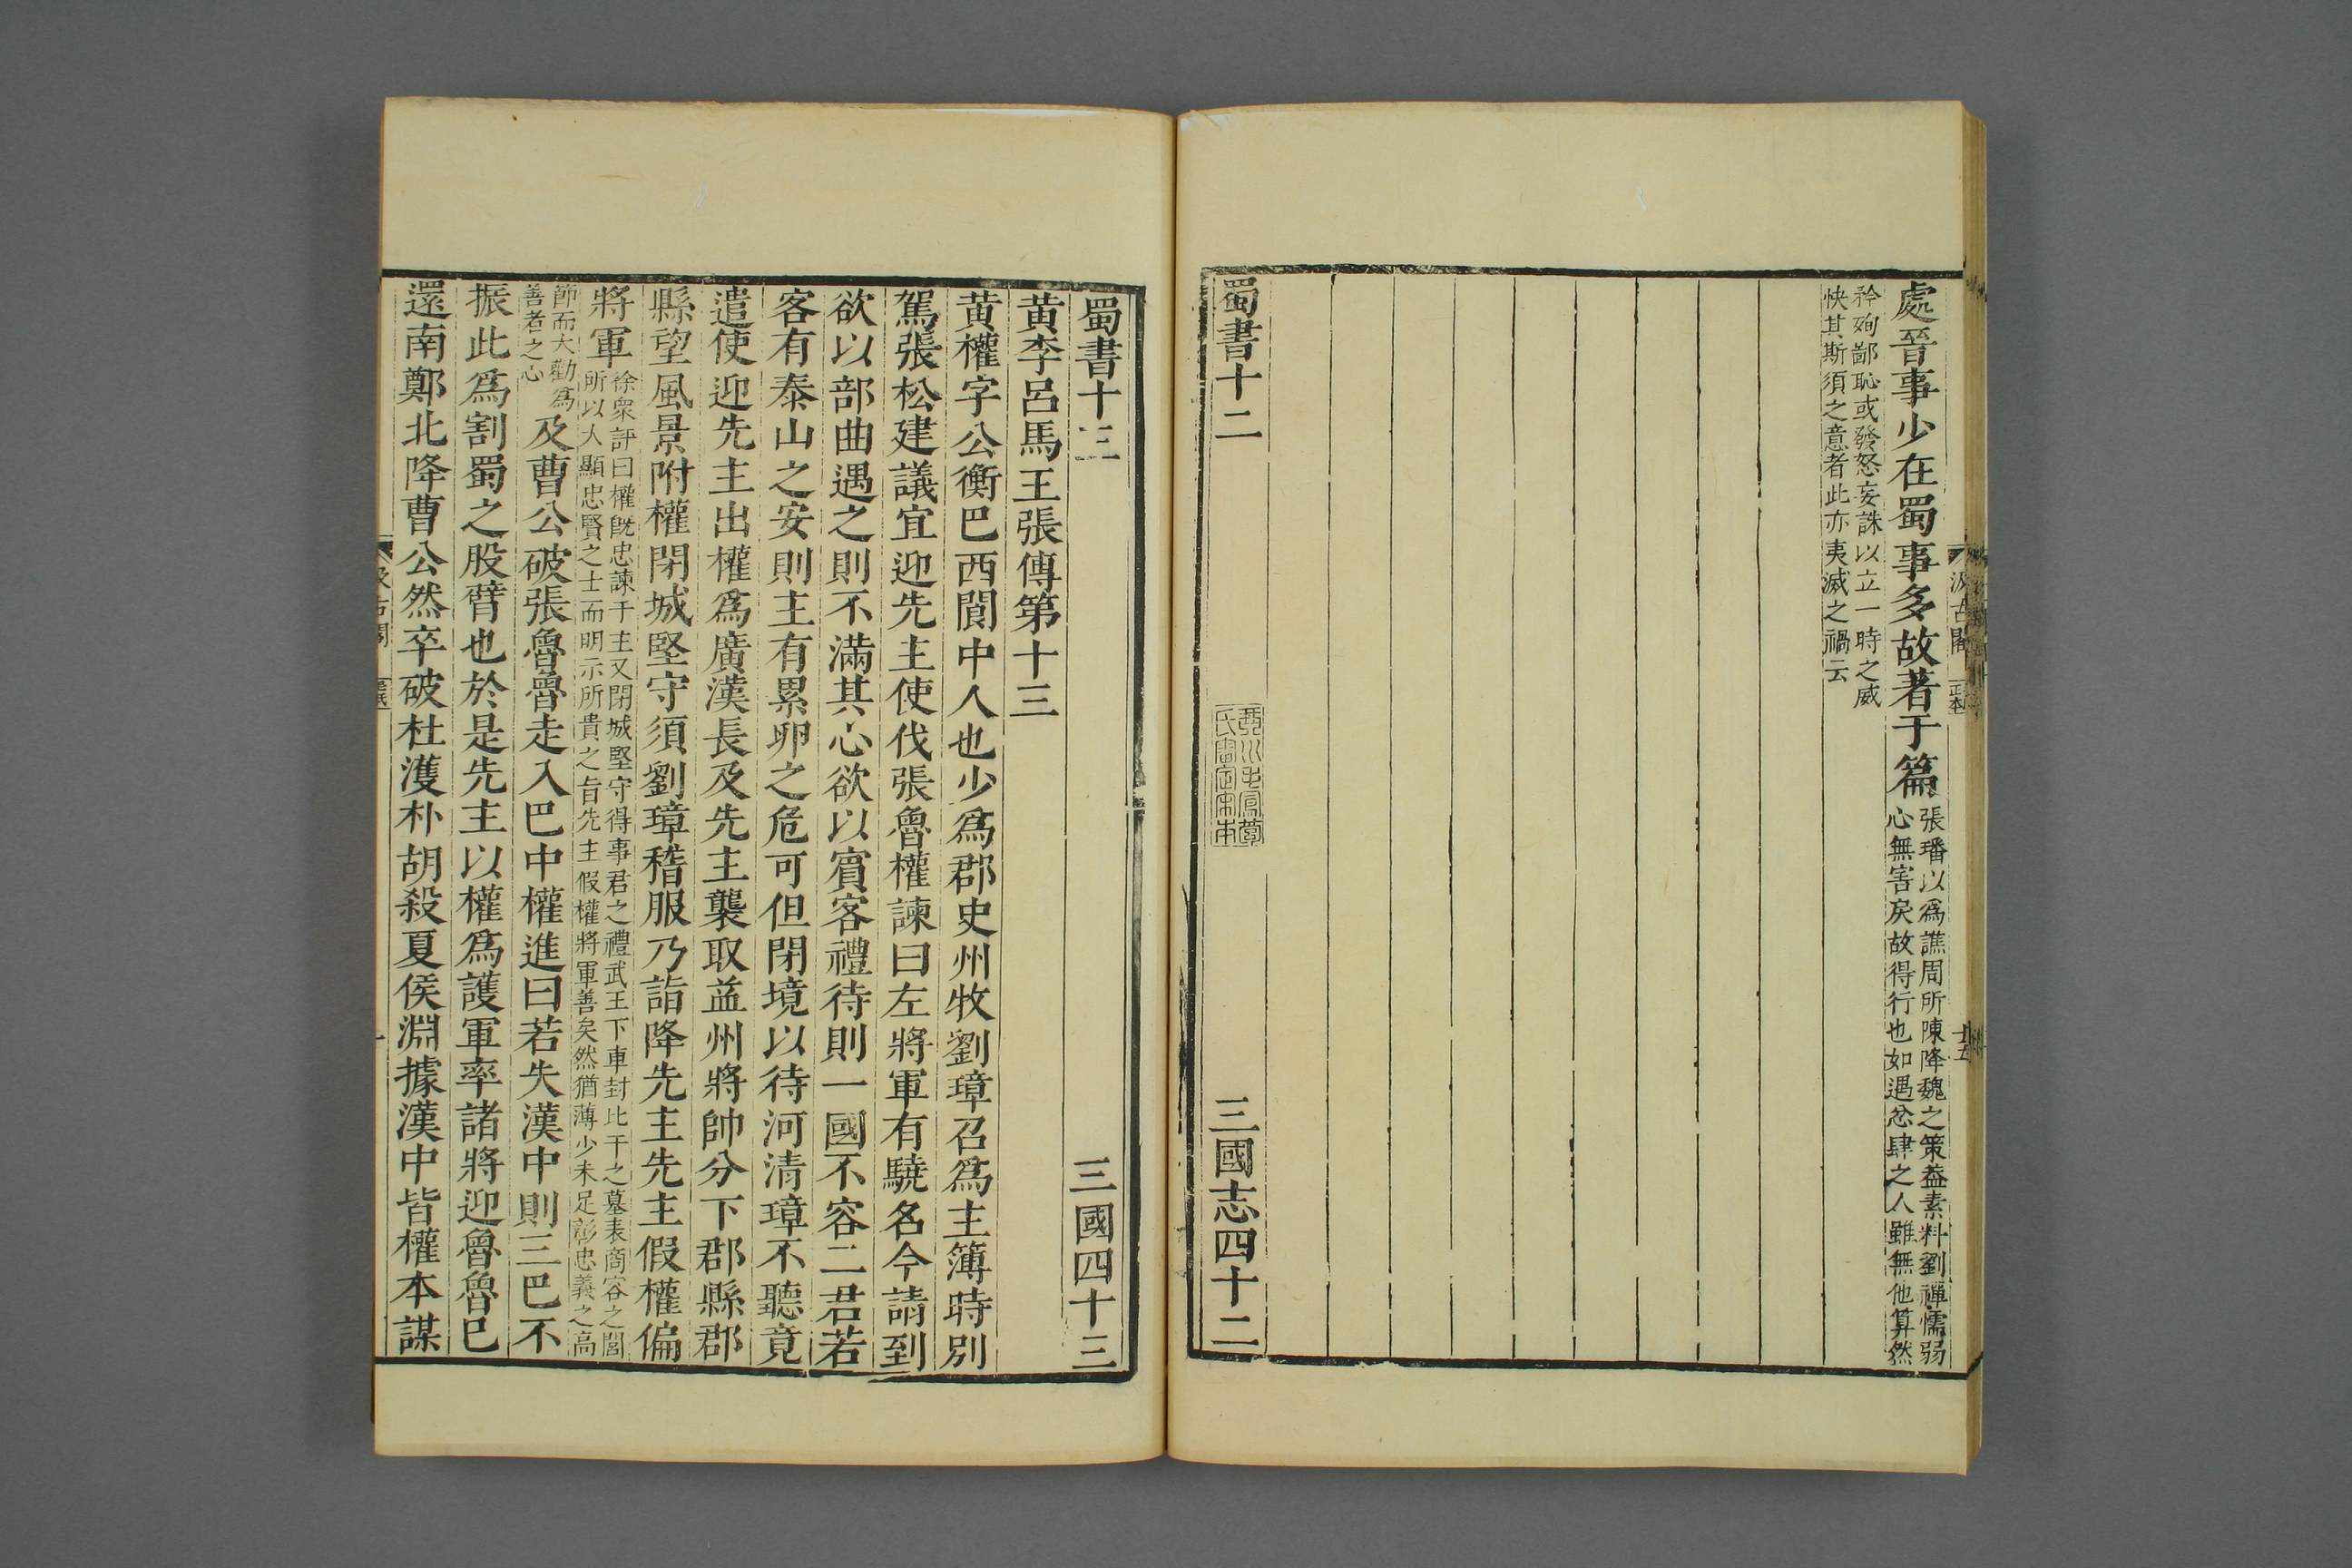 處晉事少在蜀事多故著于篇張璠以爲譙周所陳降魏之策葢素料劉禪懦弱
心無害戾故得行也如遇忿肆之人雖無他算然
矜殉鄙恥或發怒妄誅以立一時之威
快其斯須之意者此亦夷滅之禍云
蜀書十二
三國志四十二
汲古閣
蜀書十三
三國四十三
黃李呂馬王張傳第十三
黃權字公衡巴西閬中人也少爲郡史州牧劉璋召爲主簿時別
駕張松建議宜迎先主使伐張魯權諫曰左將軍有驍名今請到
欲以部曲遇之則不滿其心欲以賓客禮待則一國不容二君若
客有泰山之安則主有累卵之危可但閉境以待河清璋不聽竟
遣使迎先主出權爲廣漢長及先主襲取益州將帥分下郡縣郡
縣望風景附權閉城堅守須劉璋稽服乃詣降先主先主假權偏
將軍徐衆評曰權旣忠諫于主又閉城堅守得事君之禮武王下車封比干之墓表商容之閭
所以大顯忠賢之士而明示所貴之旨先主假權將軍善矣然猶薄少未足彰忠義之高
節而大勸爲
善者之心
及曹公破張魯魯走入巴中權進曰若失漢中則三巴不
振此爲割蜀之股臂也於是先主以權爲護軍率諸將迎魯魯巳
還南鄭北降曹公然卒破杜濩朴胡殺夏侯淵據漢中皆權本謀